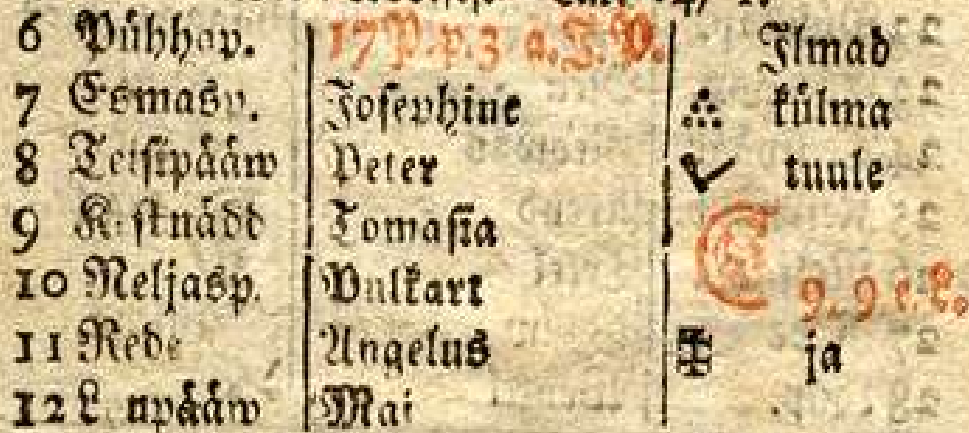 6 Pühhap. 17 P. p. 3 a. J. P. Ilmad
7 Esmasp. Josephine külma
8 Teisipääw Peter tuule
9 K:stnädd Tomasia
10 Neljasp. Vulkart 9. 9 e. L.
11 Rede Angelus ja
12 L upääw Mai